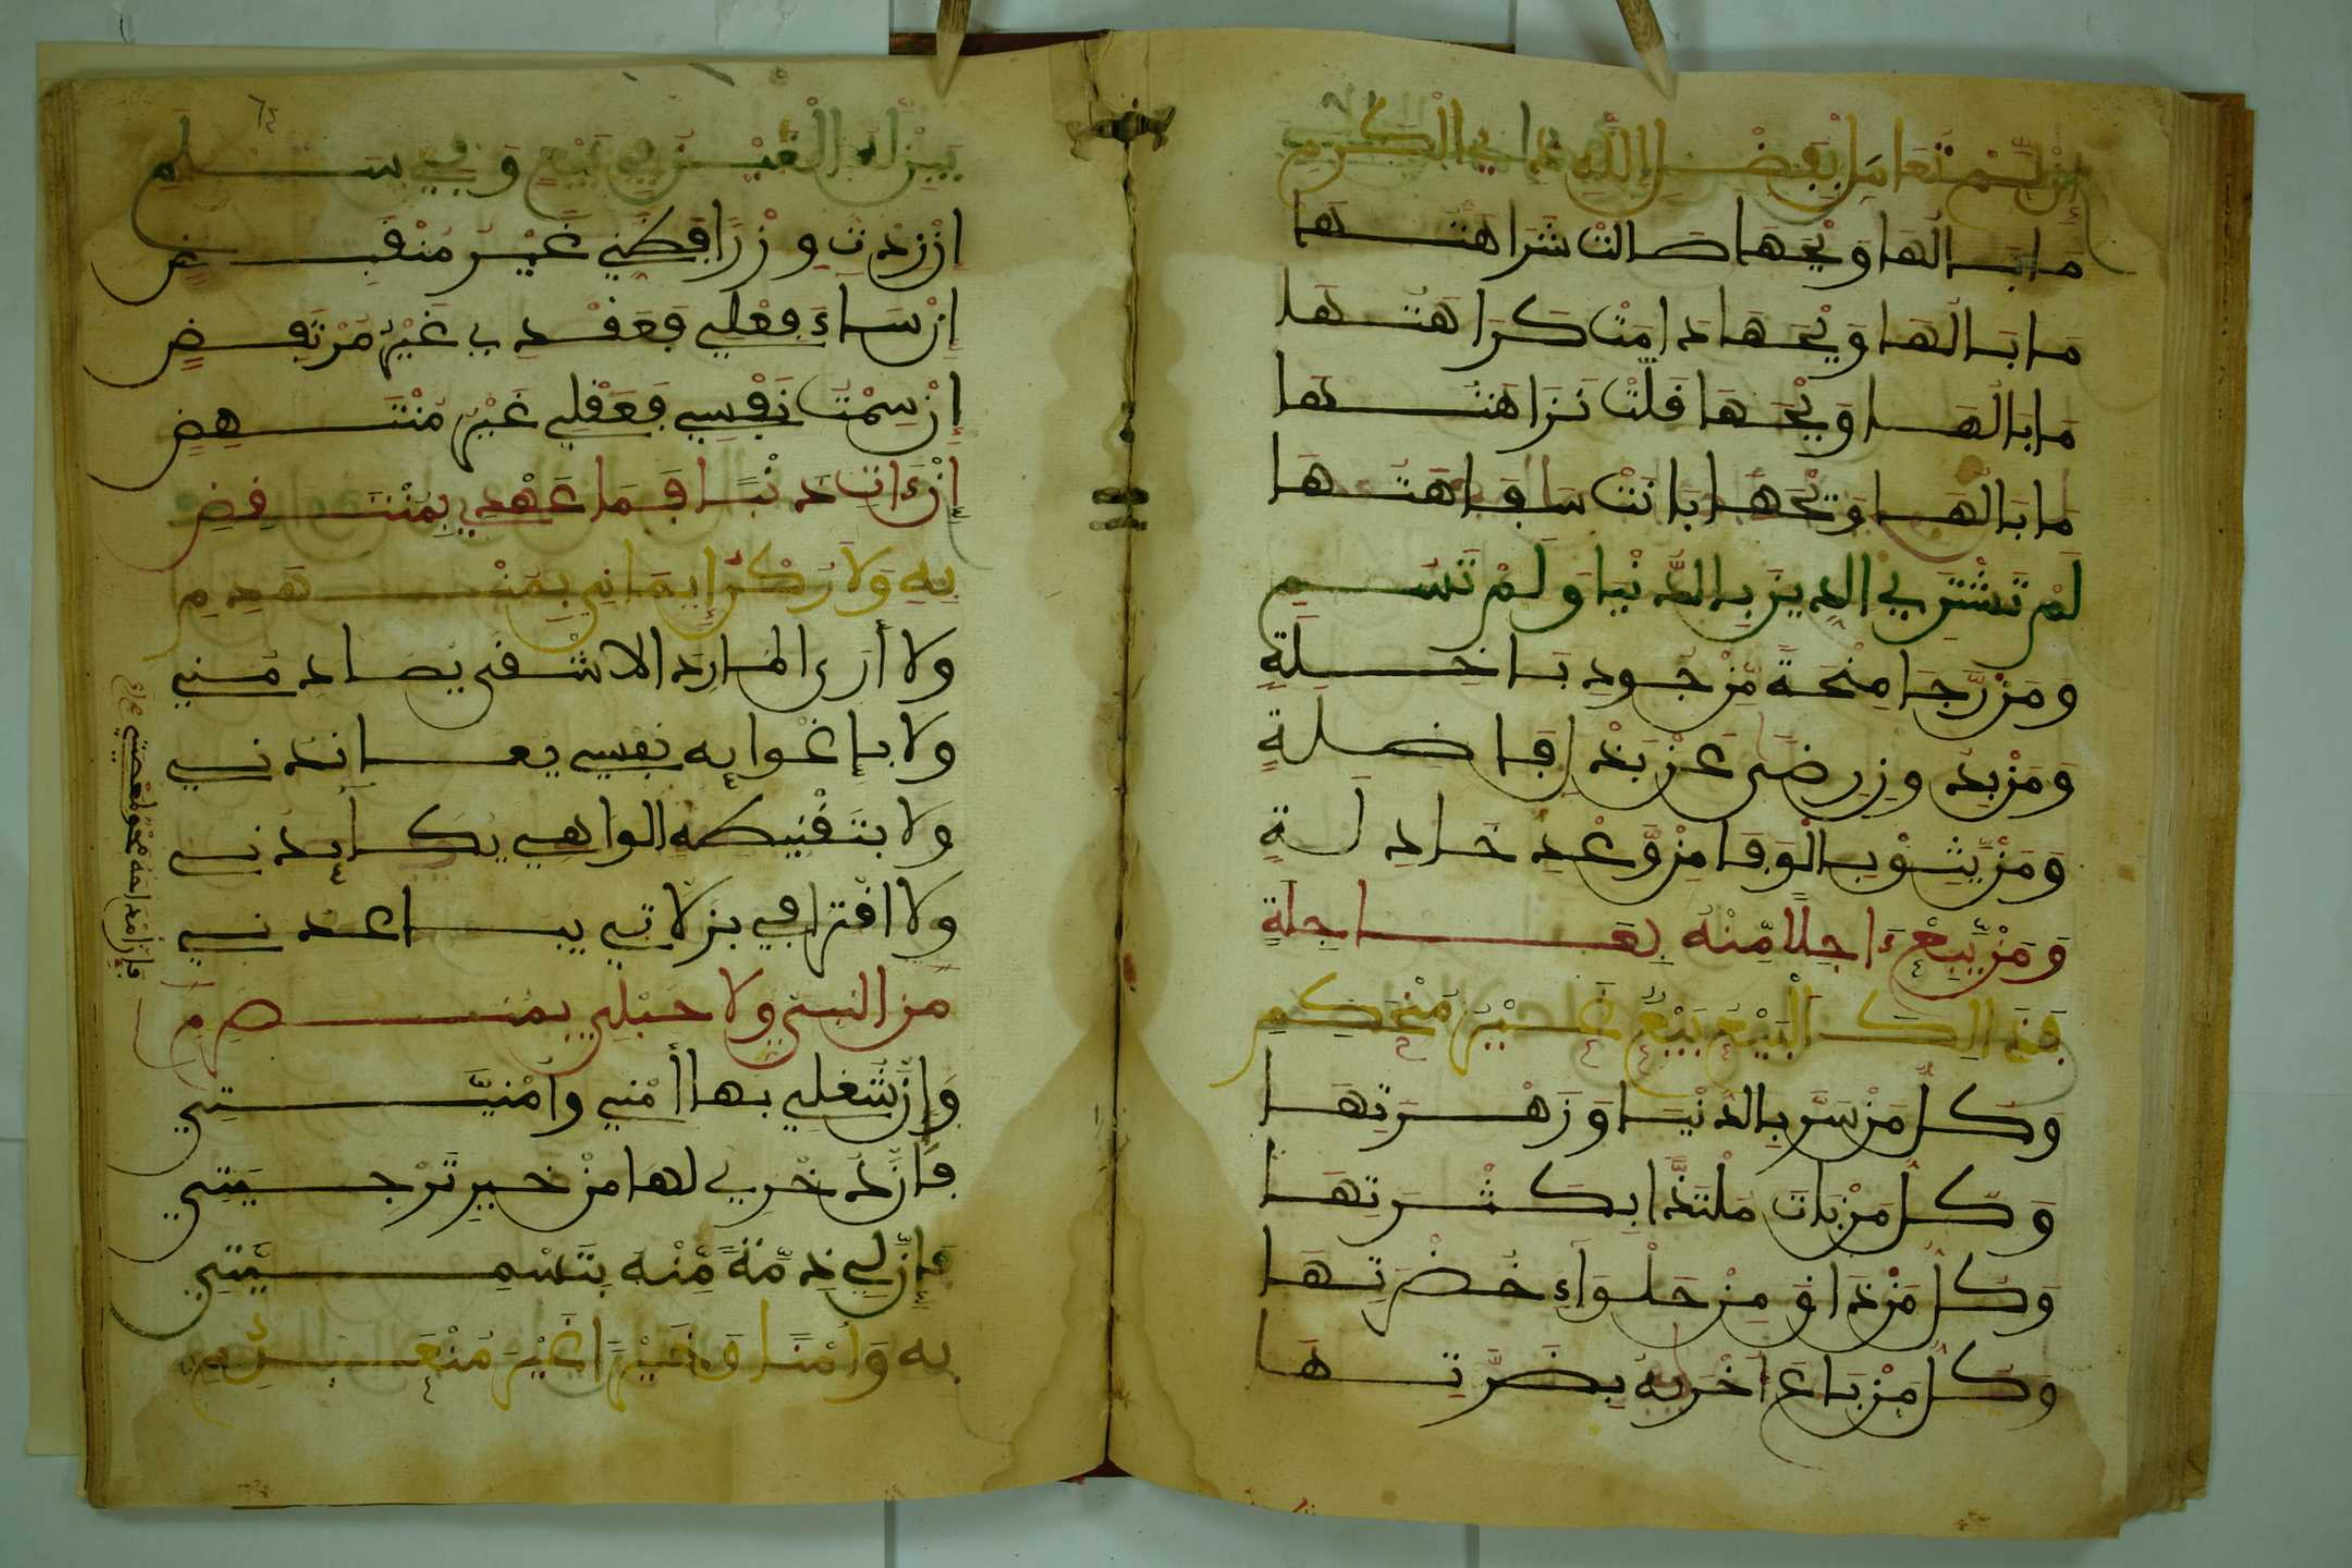 إن لم تعامل بفضل الله ذي الكرم
ما بالها ويحها طالت شراهتها
ما بالها ويحها دامت كراهتها
ما بالها ويحها قلت نزاهتها
ما بالها ويحها بانت سفاهتها
لم تشتري الدين بالدنيا ولم تسم
ومن رجا منحة من جود باخلة
ومن بدون رضى عن بذل فاضلة
ومن يشوب الوفا من وعد خاذلة
ومن يبع ءاجلا منه بعاجلة
فذالك البيع بيع غير منحكم
وكل من سر بالدنيا وزهرتها
وكل من بات ملتذا بكثرتها
وكل من ذاق من حلواء خضرتها
وكل من باع أخريه بضرتها
٦٤
يبن له الغبن في بيع وفي سلم
إن زدت وزرا فظني غير منقبض
إن ساء فعلي فعقدي غير مرتفض
إن سمت نفسي فعقلي غير منتهض
إن ءات ذنبا فما عهدي بمنتقض
به ولا ركن إيماني بمنهدم
ولا أرى المارد الاشقى يصادمني
ولا بإغوايه نفسي يعاندني
ولا بتقنيطه الواهي يكايدني
ولا افترافي بزلاتي يباعدني
من النبي ولا حبلي بمنصرم
وإن شغلي بها أمني وأمنيتي
فإن ذخري لها من خير ترجيتي
فإن لي ذمة منه بتسميتي
به وأمنا وخيرا غير منعدم